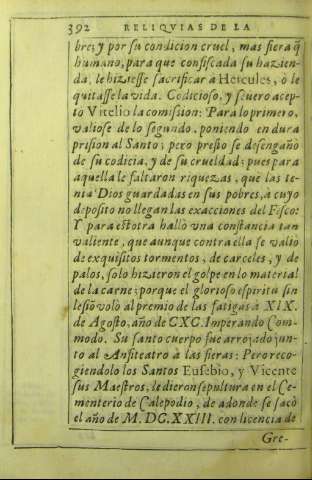 392 RELIQVIAS DE LA
bre; y por su condicion cruel, mas fiera q̃
humano, para que confiscada su hazien-
da, le hiziesse sacrificar à Hercules, ò le
quitasse la vida. Codicioso, y severo acep-
to Vitelio la comision: Para lo primero,
valiose de lo segundo, poniendo en dura
prision al Santo; pero presto se desengañò
de su codicia, y de su crueldad; pues para
aquella le faltaron riquezas, que las te-
nia Dios guardadas en sus pobres, à cuyo
deposito no llegan las exacciones del Fisco:
Y para estotra hallò vna constancia tan
valiente, que aunque contra ella se valio
de exquisitos tormentos, de carceles, y de
palos, solo hizieron el golpe en lo material
de la carne; porque el glorioso espiritu sin
lesiõ volò al premio de las fatigas à XIX.
de Agosto, año de CXC. Imperando Com-
modo. Su santo cuerpo fue arrojado jun-
to al Anfiteatro à las fieras: Pero reco-
giendolo los Santos Eusebio, y Vicente
sus Maestros, le dieron sepultura en el Ce-
menterio de Calepodio, de adonde se sacò
el año de M. DC. XXIII. con licencia de
Gre-